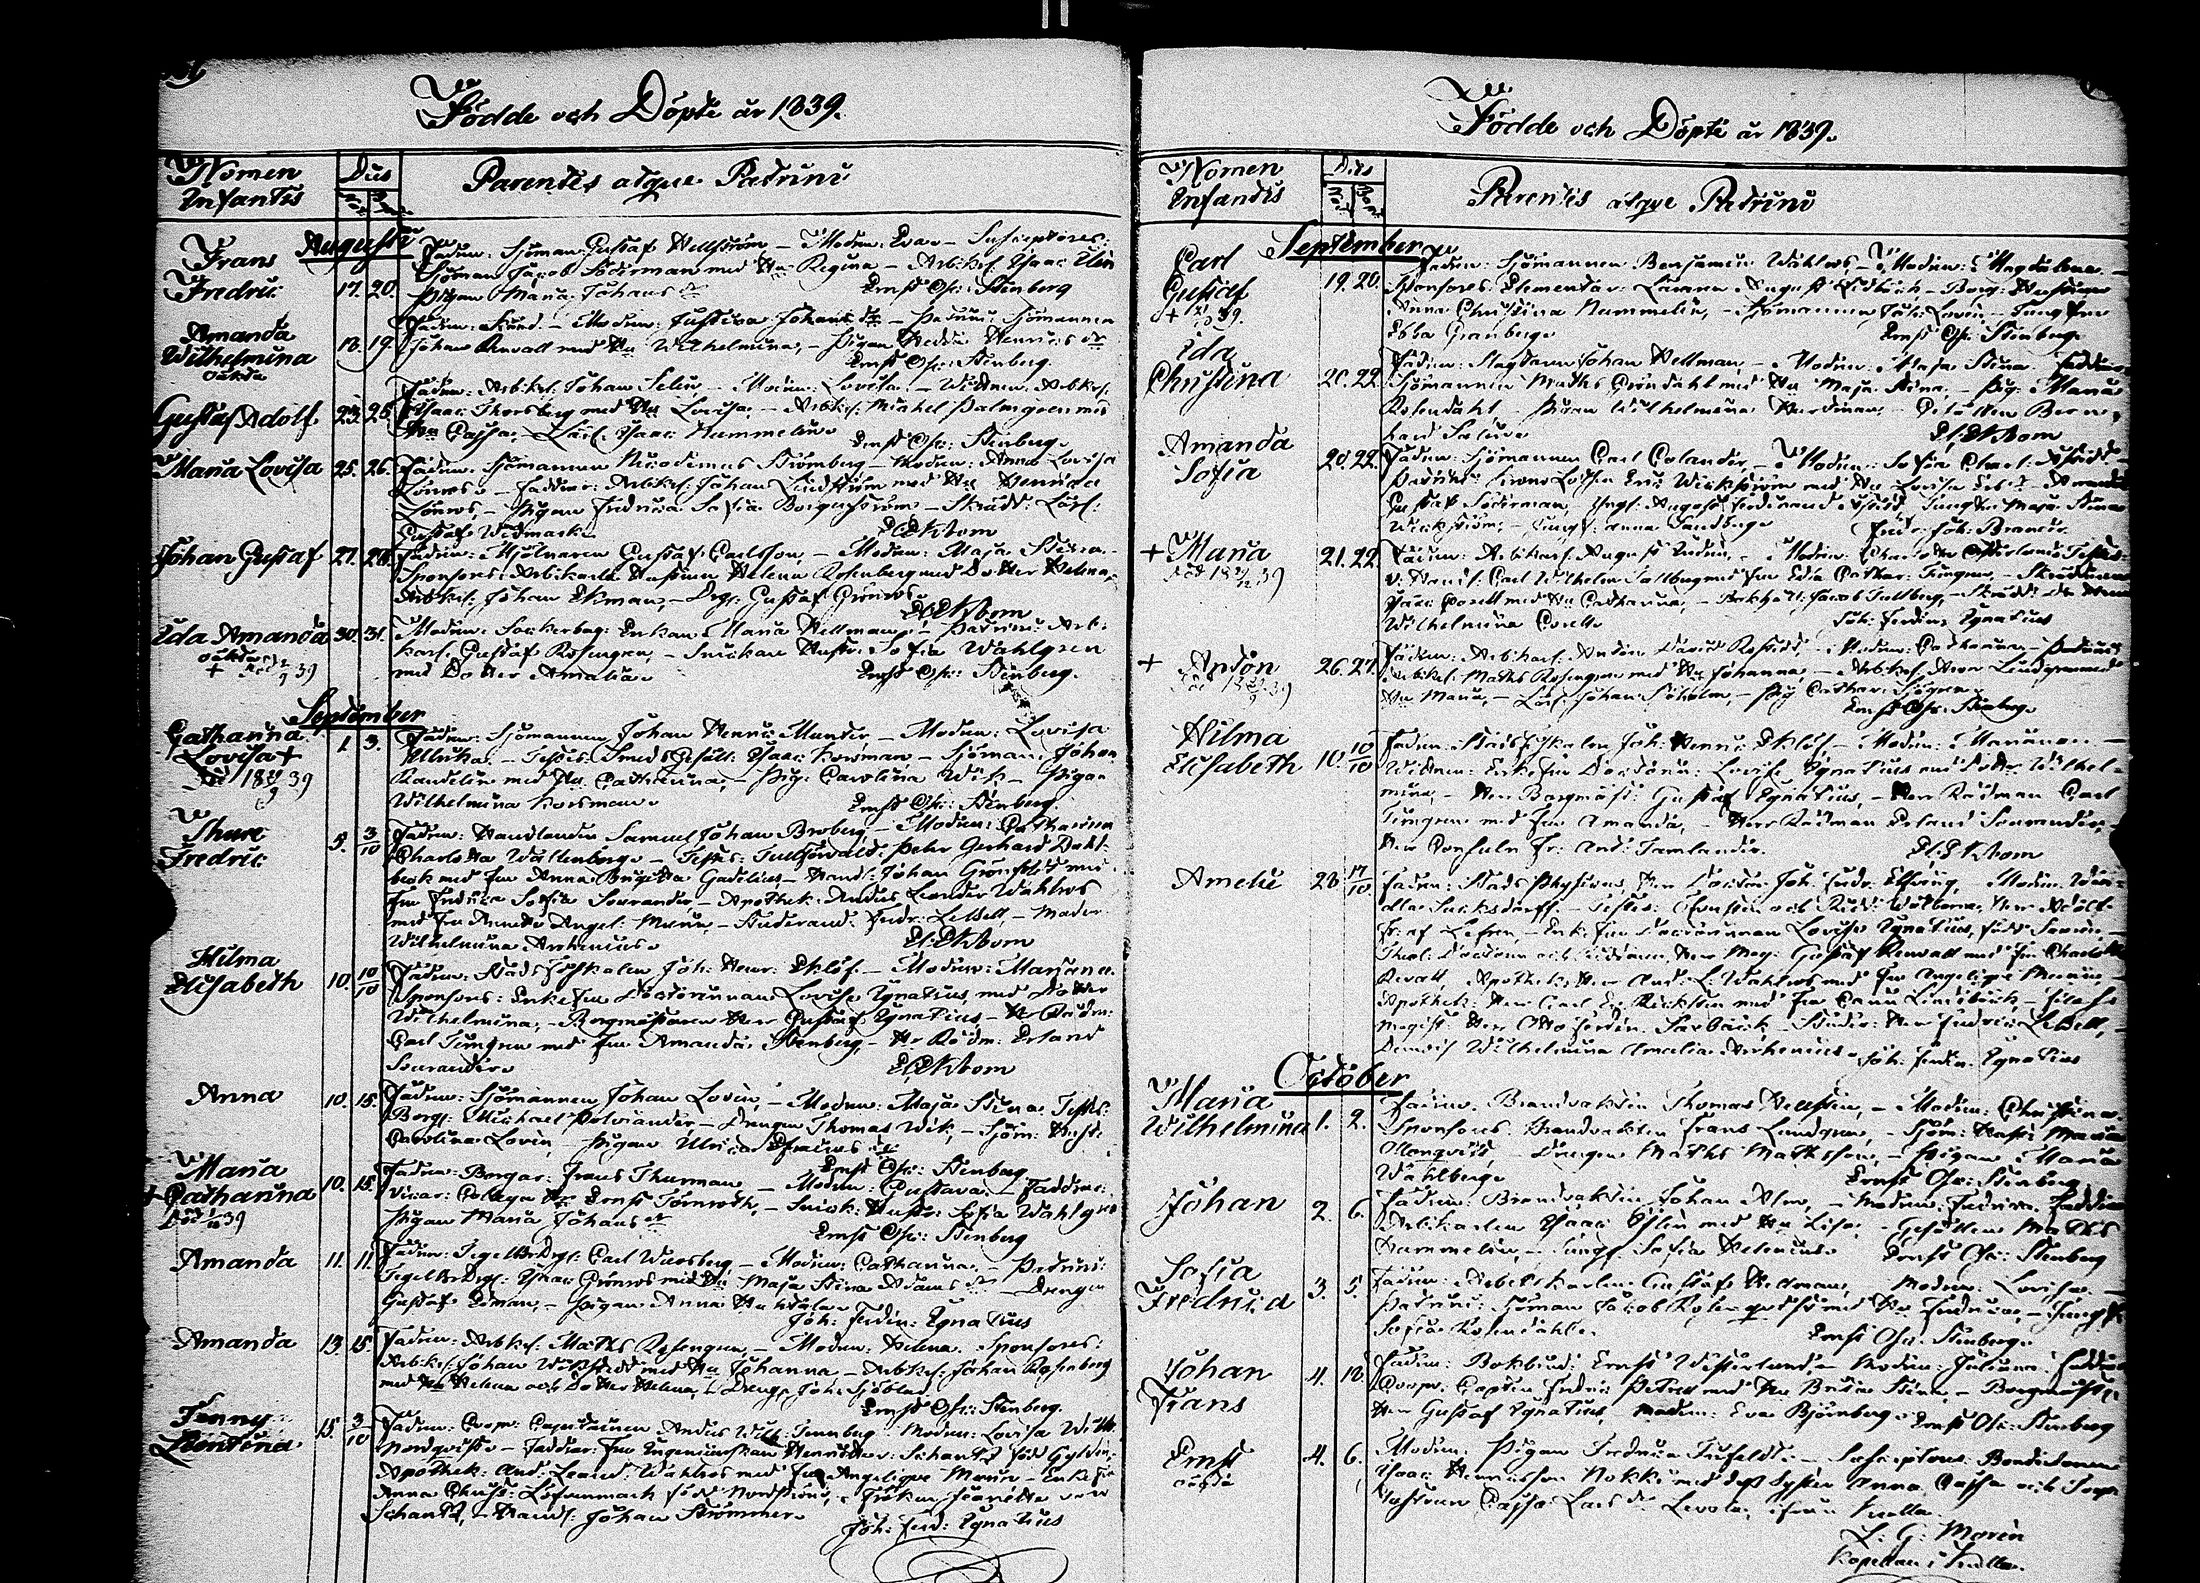 Födde och Döpte år 1839.
Nomen Infantis
Dies
Parentes atque Patrini
Augusti
Frans Fredric
17. 20.
Fadren: Sjöman Gustaf Hellström – Modren: Eva – Susceptores:
Sjöman Jacob Söderman med Hu Regina – Arbkrl: Isaac
Pigan Maria Johans dr
Ernst Osc: Stenberg
Amanda Wilhelmina oäkta
18. 19.
Fadren: okänd – Modren: Justina Johans dr – Patrini: Sjömannen
Johan Renvall med Hu Wilhelmina, – Pigan Hedda Henrics dr
Ernst Osc: Stenberg.
Gustaf Adolf.
23. 26.
Fadren: Arbkrl: Johan Selin, – Modren: Lovisa – Wittnen: Arbkrl:
Isaac Thorsberg med Hu Lovisa, – Arbkrl: Michel Palmgren med
Hu Cajsa, – Lärl: Isaac Nummelin.
Ernst Osc: Stenberg.
Maria Lovisa
25. 26.
Fadren: Sjömannen Nicodemus Strömberg – Modren: Anna Lovisa
Lönros. – Faddrar: Arbkrl: Johan Lindström med Hu Henrica
Lönros, – Pigan Fredrica Sofia Borgström – Skrädd: Lärl:
Gustaf Widmark.
El: Ekbom
Johan Gustaf
27. 28.
Fadren: Mjölnaren Gustaf Carlsson, – Modren: Maja Stina –
Sponsores: Arbtkarls Hustrun Helena Rosenberg med Dotter Helena,
Arbkrl: Johan Ekman, – Drg: Gustaf Grönros.
El: Ekbom
Ida Amanda oäkta
30. 31.
+
Modren: Sockerbag: Enkan Maria Hellman, – Patrini: Arb:
karl: Gustaf Rosengren, – Snickare Hustr: Sofia Wahlgren
med Dotter Amalia.
Ernst Osc: Stenberg.
September
Catharina Lovisa +
1. 3.
Fadren: Sjömannen Johan Henric Munter – Modren: Lovisa
Ullrika. – Testes: Smeds Gesäll: Isaac Korsman – Sjöman: Johan
Randelin med Hu Catharina, – Pig: Carolina Wik – Pigan
Wilhelmina Korsman.
Ernst Osc: Stenberg.
Thure Fredric
5. 3/10
Fadren: Handlanden Samuel Johan Broberg – Modren: Catharina
Charlotta Wallenborg. – Testes: Tullförvalt: Peter Gerhard Dahl-
beck med Fru Anna Brigitta Gadelius – Handl: Johan Grönfeldt med
Fru Fredrica Sofia Sourander – Apothek: Anders Leander Wahlros
med Fru Annette Angel: Maria, – Studerand: Fredr: Lebell, – Mademoi:
Wilhelmina Arrhenius.
El: Ekbom
Hilma Elisabeth
10. 10/10
Fadren: Stads Fiskalen Joh: Henr: Eklöf. – Modren: Mariana.
Sponsores: Enke Fru Doctorinnan Lovisa Ignatius med Dotter
Wilhelmina, – Borgmästaren Herr Gustaf Ignatius – Hr Rådm:
Carl Timgren med Fru Amanda Stenberg, – Hr Rådm: Erland
Sourander.
El: Ekbom
Anna
10. 15.
Fadren: Sjömannen Johan Lovin, – Modren: Maja Stina. Testes:
Borg: Michael Polviander, – Drengen Thomas Wik, – Sjöm: Hustr:
Carolina Lovin, – Pigan Ulrica Efraims dr
Ernst Osc: Stenberg
Maria + Catharina
10. 15.
Fadren: Borgar: Frans Thurman – Modren: Gustava. – Faddrar:
Vicar: Collega Hr Ernst Törnroth, – Snick: Hustr: Sofia Wahlgren
Pigan Maria Johans dr
Ernst Osc: Stenberg
Amanda
11. 11.
Fadren: Tegelbr Drg: Carl Warsberg, – Modren: Catharina. – Patrini:
Tegelbr Drg: Isaac Grönros med Hu Maja Stina Adams dr – Drengen
Gustaf Edman, – Pigan Anna
Joh: Ferdin: Ignatius
Amanda
13. 15.
Fadren: Arbkrl: Maths Rosengren, – Modren: Helena. Sponsores:
Arbkrl: Johan med Hu Johanna – Arbkrl: Johan Rosenberg
med Hu Helena och Dotter Helena, – Dreng: Joh: Sjöblad.
Ernst Osc: Stenberg.
Jenny Leontina
15. 3/10
Fadren: Coop: Capitainen Anders Wilh: Tennberg – Modren: Lovisa Wilh:
Nordqvist. – Faddrar: Fru Ingenieurskan Henrietta Schantz född Gyldén,
Apothek: And: Leand: Wahlros med Fru Angelique Maria – Enke Fru
Anna Christ: Löfvenmark född Nordström, – Fröken Jeanette von
Schantz, – Handl: Johan Strömmer.
Joh: Ferd: Ignatius
Födde och Döpte år 1839.
Nomen Infantis
Dies
Parentes atque Patrini
September
Carl Gustaf
19. 20.
Fadren: Sjömannen Benjamin Wahlros, – Modren: Magdalena. –
Sponsores: Elementar: Läraren August Lidbäck – Borg: Hustrun
Anna Christina Nummelin, – Sjömannen Joh: Lovin – Jungfru
Ebba Granberg.
Ernst Osc: Stenberg.
Ida Christina
20. 22.
Fadren: Slagtaren Johan Hellman, – Modren: Maja Stina. Faddrar:
Sjömannen Maths Gröndahl med Hu Maja Stina, – Pig: Maria
Rosendahl, – Pigan Wilhelmina Nordman,
hard Salin.
El: Ekbom
Amanda Sofia
20. 22.
Fadren: Sjömannen Carl Colander, – Modren: Sofia
Patrini: Krono Lotsen Eric Wickström med Hu Lovisa
Gustaf Söderman, Ungk: August Ferdinand Jungfru Maja Stina
Wickström, – Jungf: Anna Sandberg.
Fredr: Joh: Brander
+ Maria
21. 22.
Fadren: Arbtkarl: August Lydén, – Modren: Charlotta Testes:
Handl: Carl Wilhelm Tallberg med Fru Edla Cathar: Timgren, – Skräddaren
Isaac Corell med Hu Catharina, – Bokhåll: Jacob Tallberg, –
Wilhelmina Corell.
Joh: Ferdin: Ignatius
+ Anton
26. 27.
Fadren: Arbtkarl: Anton David – Modren: Catharina – Patrini:
Arbtkrl: Maths Rosengren med Hu Johanna, – Arbkrl: Abr: Lundgren med
Hu Maria, – Lärl: Johan Söholm, – Pig: Cathar: Sjögren.
Ernst Osc: Stenberg.
Hilma Elisabeth
10. 10/10
Fadren: Stads Fiskalen Joh: Henric Eklöf, – Modren: Mariana –
Wittnen: Enke Fru Doctorin: Lovisa Ignatius med Dotter Wilhel-
mina, – Herr Borgmäst: Gustaf Ignatius, – Herr Rådman Carl
Timgren med Fru Amanda, – Herr Rådman Erland Sourander,
Herr Consuln Fr: And: Jamlander.
El: Ekbom
Amelie
28. 17/10
Fadren: Stads Physicus, Herr Doctor Joh: Fredr: Elfving, – Modren:
Sucksdorff – Testes: Herr Adolf
Fr: af Lefrén, – Enke Fru Doctorinnan Lovisa Ignatius, född
Theol: Doctorn och Riddaren, Herr Mag: Gustaf Renvall med Fru Charlotta
Revall, Apothek: Herr And: L: Wahlros med Fru Angelique Maria,
Apothek: Herr Carl Er: Ericksson med Fru Carin Lindebäck, – Filos:
Magist: Herr Otto Ferdin: Sacklén – Studer: Herr Fredric Lebell,
Demois: Wilhelmina Amalia Arrhenius.
Joh: Ferdin: Ignatius
October
Maria Wilhelmina
1. 2.
Fadren: Brandvakten Thomas Hellsten, – Modren: Christina.
Sponsores: Brandvakten Frans Lundgren, – Sjöm: Hustr: Maria
Malmqvist, – Drengen Maths Mathsson, – Pigan Maria
Wahlberg.
Ernst Osc: Stenberg
Johan
2. 6.
Fadren: Brandvakten Johan Alm, – Modren: Fredrica. Faddrar
Arbtkarlen Isaac Östen med Hu Lisa, – Gesällen Maths
Nummelin, – Jungf: Sofia Helenius.
Ernst Osc: Stenberg
Sofia Fredrica
3. 5.
Fadren: Arbetskarlen Gustaf Hedman, Modren: Lovisa. –
Patrini: Sjöman Jacob Rosenqvist med Hu Fredrica, – Jungf:
Sofia Rosendahl.
Ernst Osc: Stenberg.
Johan Frans
4. 18.
Fadren: Bokbind: Ernst Westerlund, – Modren: Juliana. Faddrar
Coop: Capten Fredric Petrell med Hu Brita Stina, – Borgmäst:
Herr Gustaf Ignatius, Madem: Eva Björnberg.
Ernst Osc: Stenberg
Ernst oäkta
4. 6.
Modren: Pigan Fredrica Tufeldt. – Susceptores: Bonde Sonen
Isaac Henricsson Nokki med dess Syster Anna Cajsa och
Hustrun Cajsa Lars dr Levola, ifrån Kulla.
L: G: Morén
Kapellan i Kulla.